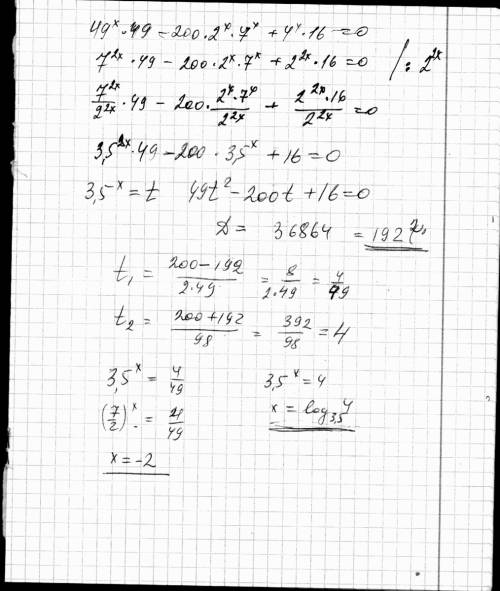 49^x · 49 - 200 · 2^x · 7^x + 4^x · 16 = 0
7^2x · 49 - 200 · 2^x · 7^x + 2^2x · 16 = 0 / : 2^2x
7^2x/2^2x · 49 - 200 · 2^x · 7^x/2^2x + 2^2x · 16/2^2x = 0
3,5^2x · 49 - 200 · 3,5^x + 16 = 0
3,5^x = t 49t^2 - 200t + 16 = 0
D = 36864 = 192^2
t1 = 200-192/2·49 = 8/2·49 = 4/49
t2 = 200+192/98 = 392/98 = 4
3,5^x = 4/49 3,5^x = 4
(7/2)^x = 4/49 x = log3,5 4
x = -2